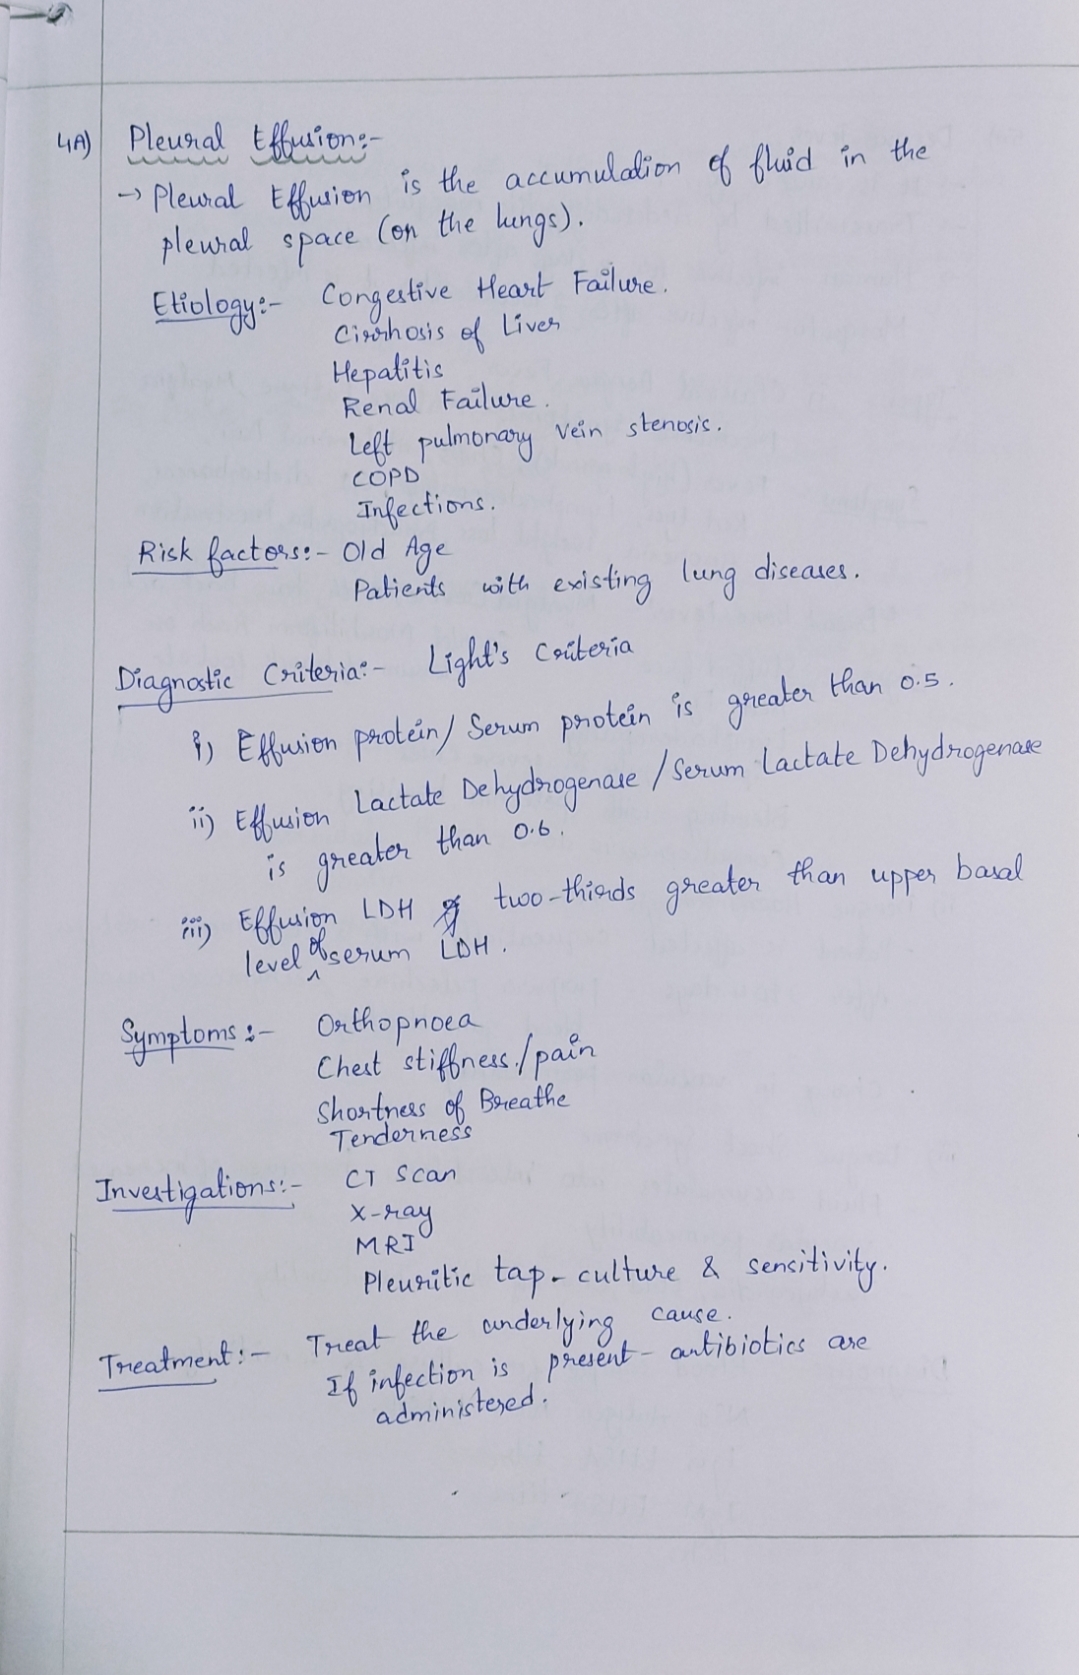 4A) Pleural Effusion:-
→ Pleural Effusion is the accumulation of fluid in the
pleural space (on the lungs).
Etiology:- Congestive Heart Failure.
Cirrhosis of Liver
Hepatitis
Renal Failure.
Left pulmonary vein stenosis.
COPD
Infections.
Risk factors:- Old Age
Patients with existing lung diseases.
Diagnostic Criteria:- Light's Criteria
i) Effusion protein/ Serum protein is greater than 0.5.
ii) Effusion Lactate Dehydrogenase / Serum Lactate Dehydrogenase
is greater than 0.6.
iii) Effusion LDH two-thirds greater than upper basal
level of serum LDH.
Symptoms:- Orthopnoea
Chest stiffness/pain
Shortness of Breathe
Tenderness
Investigations:- CT Scan
X-ray
MRI
Pleuritic tap - culture & sensitivity.
Treatment:- Treat the underlying cause.
If infection is present - antibiotics are
administered.